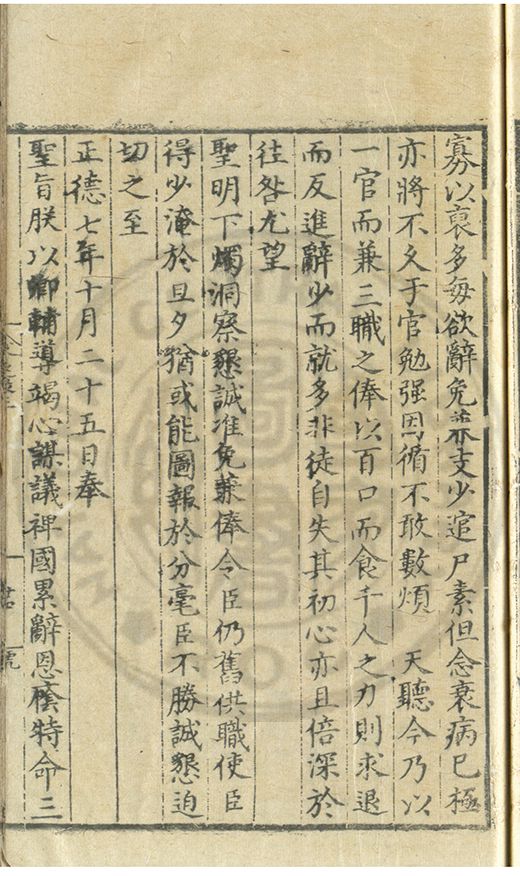 寡以裒多每欲辭免兼支少逭尸素但念衰病已極
亦將不久于官勉强因循不敢數煩 天聽今乃以
一官而兼三職之俸以百口而食千人之力則求退
而反進辭少而就多非徒自失其初心亦且倍深於
徃咎尤望
聖明下燭洞察懇誠准免兼俸令臣仍舊供職使臣
得少淹於旦夕猶或能圖報於分毫臣不勝誠懇迫
切之至
正德七年十月二十五日奉
聖旨朕以卿輔導竭心謀議裨國累辭恩廕特命三